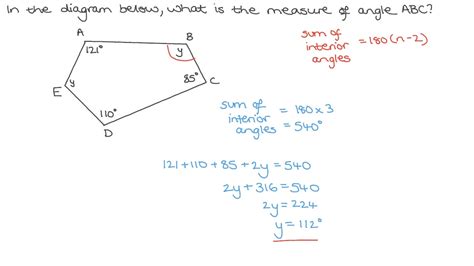 In the diagram below, what is the measure of angle ABC?
sum of
interior = 180 (n-2)
angles
A
B
121°
y
85°
C
E
y
110°
D
sum of
interior = 180 x 3
angles = 540°
121 + 110 + 85 + 2y = 540
2y + 316 = 540
2y = 224
y = 112°